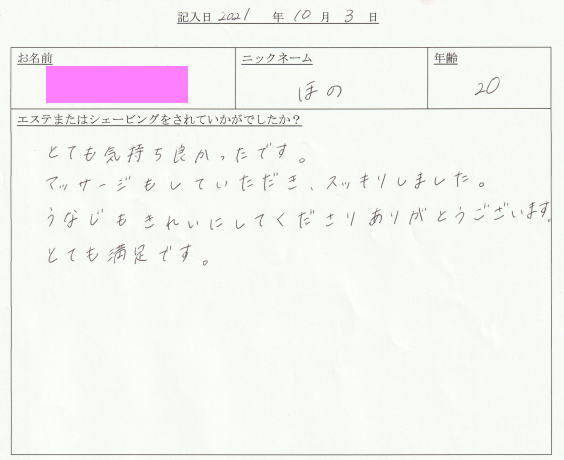 記入日 2021 年 10 月 3 日
お名前 ニックネーム 年齢
ほの 20
エステまたはシェービングをされていかがでしたか？
とても気持ち良かったです。
マッサージもしていただき、スッキリしました。
うなじもきれいにしてくださりありがとうございます。
とても満足です。